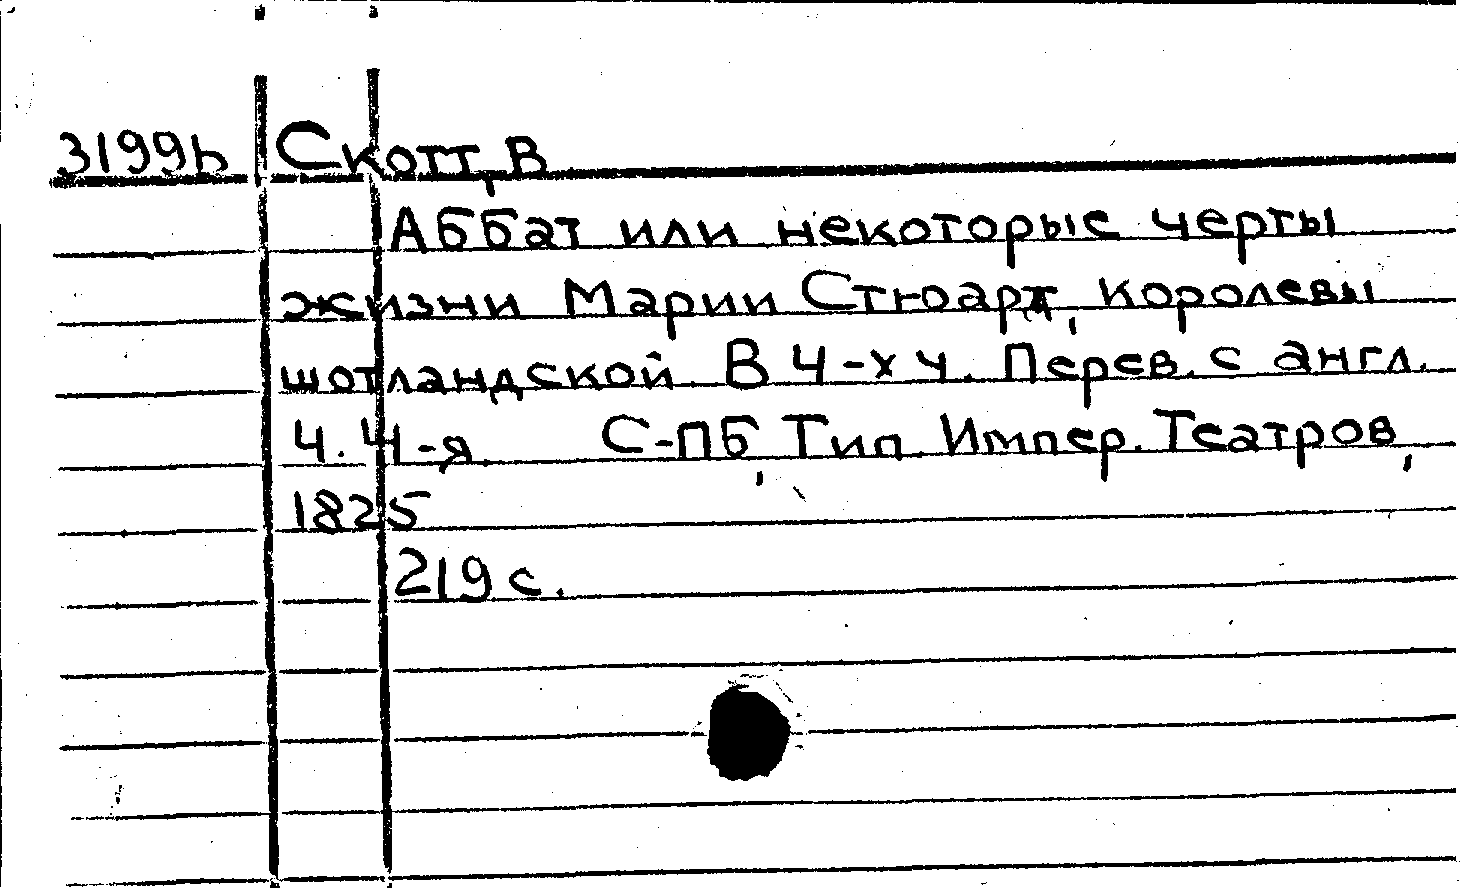 3199b Скотт, В
Аббат или некоторые черты
жизни Марии Стюарт, королевы
шотландской. В 4-х ч. Перев. с англ.
Ч. 4-я. С-ПБ, Тип. Импер. Театров,
1825
219 с.